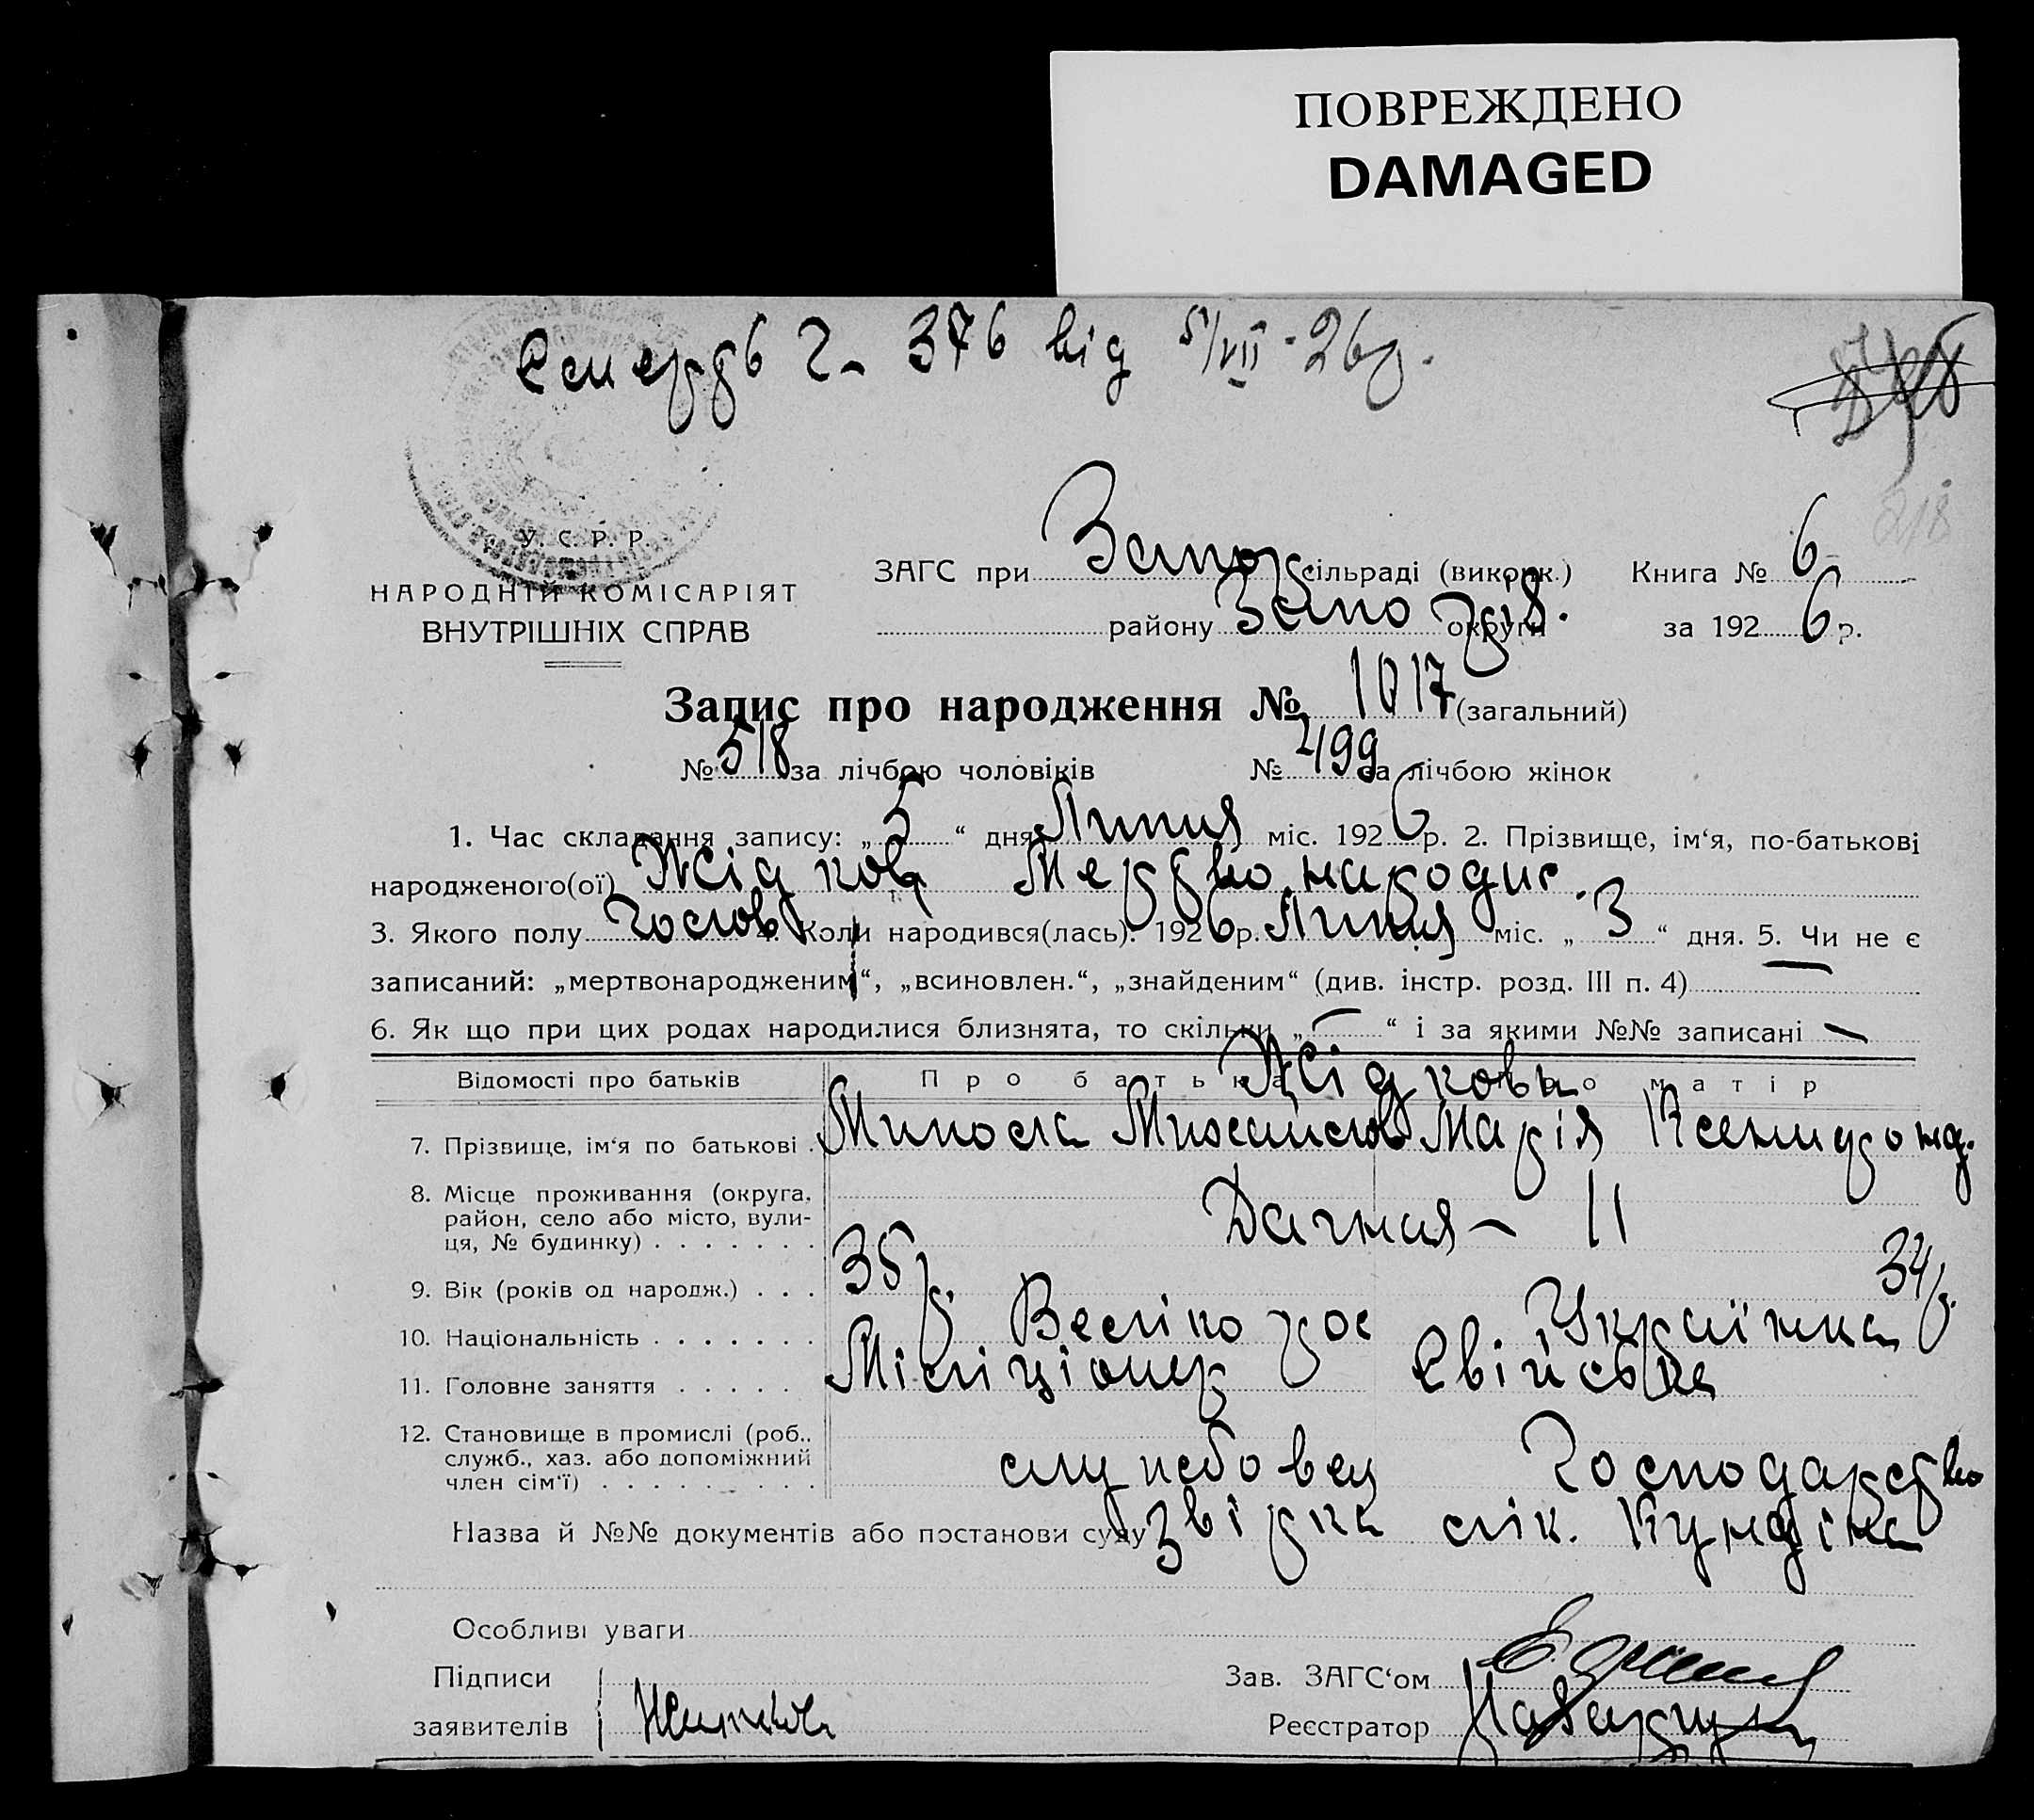 ПОВРЕЖДЕНО
DAMAGED
Смерть Ч. 376 від 5/VII-26р.
У. С. Р. Р.
НАРОДНІЙ КОМІСАРІЯТ
ВНУТРІШНІХ СПРАВ
ЗАГС при Запор сільраді (виконк.) Книга № 6
району Запоріз. округи за 1926 р.
Запис про народження № 1017 (загальний)
№ 518 за лічбою чоловіків № 499 за лічбою жінок
1. Час складання запису: „5“ дня Липня міс. 1926 р. 2. Прізвище, ім‘я, по-батькові
народженого(ої) Жідков Мертво народис.
3. Якого полу Чолов 4. Коли народився(лась): 1926 р. Липня міс. „3“ дня. 5. Чи не є
записаний: „мертвонародженим“, „всиновлен.“, „знайденим“ (див. інстр. розд. III п. 4) —
6. Як що при цих родах народилися близнята, то скільки „—“ і за якими №№ записані —
Відомості про батьків Про батька Про матір
Жідкови
7. Прізвище, ім‘я по батькові . Микола Михайлов Марія
8. Місце проживання (округа, район, село або місто, вулиця, № будинку) . . . . . . . Дачная – 11
9. Вік (років од народж.) . . . 35 р. 34 р.
10. Національність . . . . . . . Велікорос Українка
11. Головне заняття . . . . . Міліціонер Свійське
12. Становище в промислі (роб., служб., хаз. або допоміжний член сім‘ї) . . . . . . . . . службовец Господарство
Назва й №№ документів або постанови суду Звірка лік.
Особливі уваги
Підписи
заявителів
Зав. ЗАГС‘ом
Реєстратор